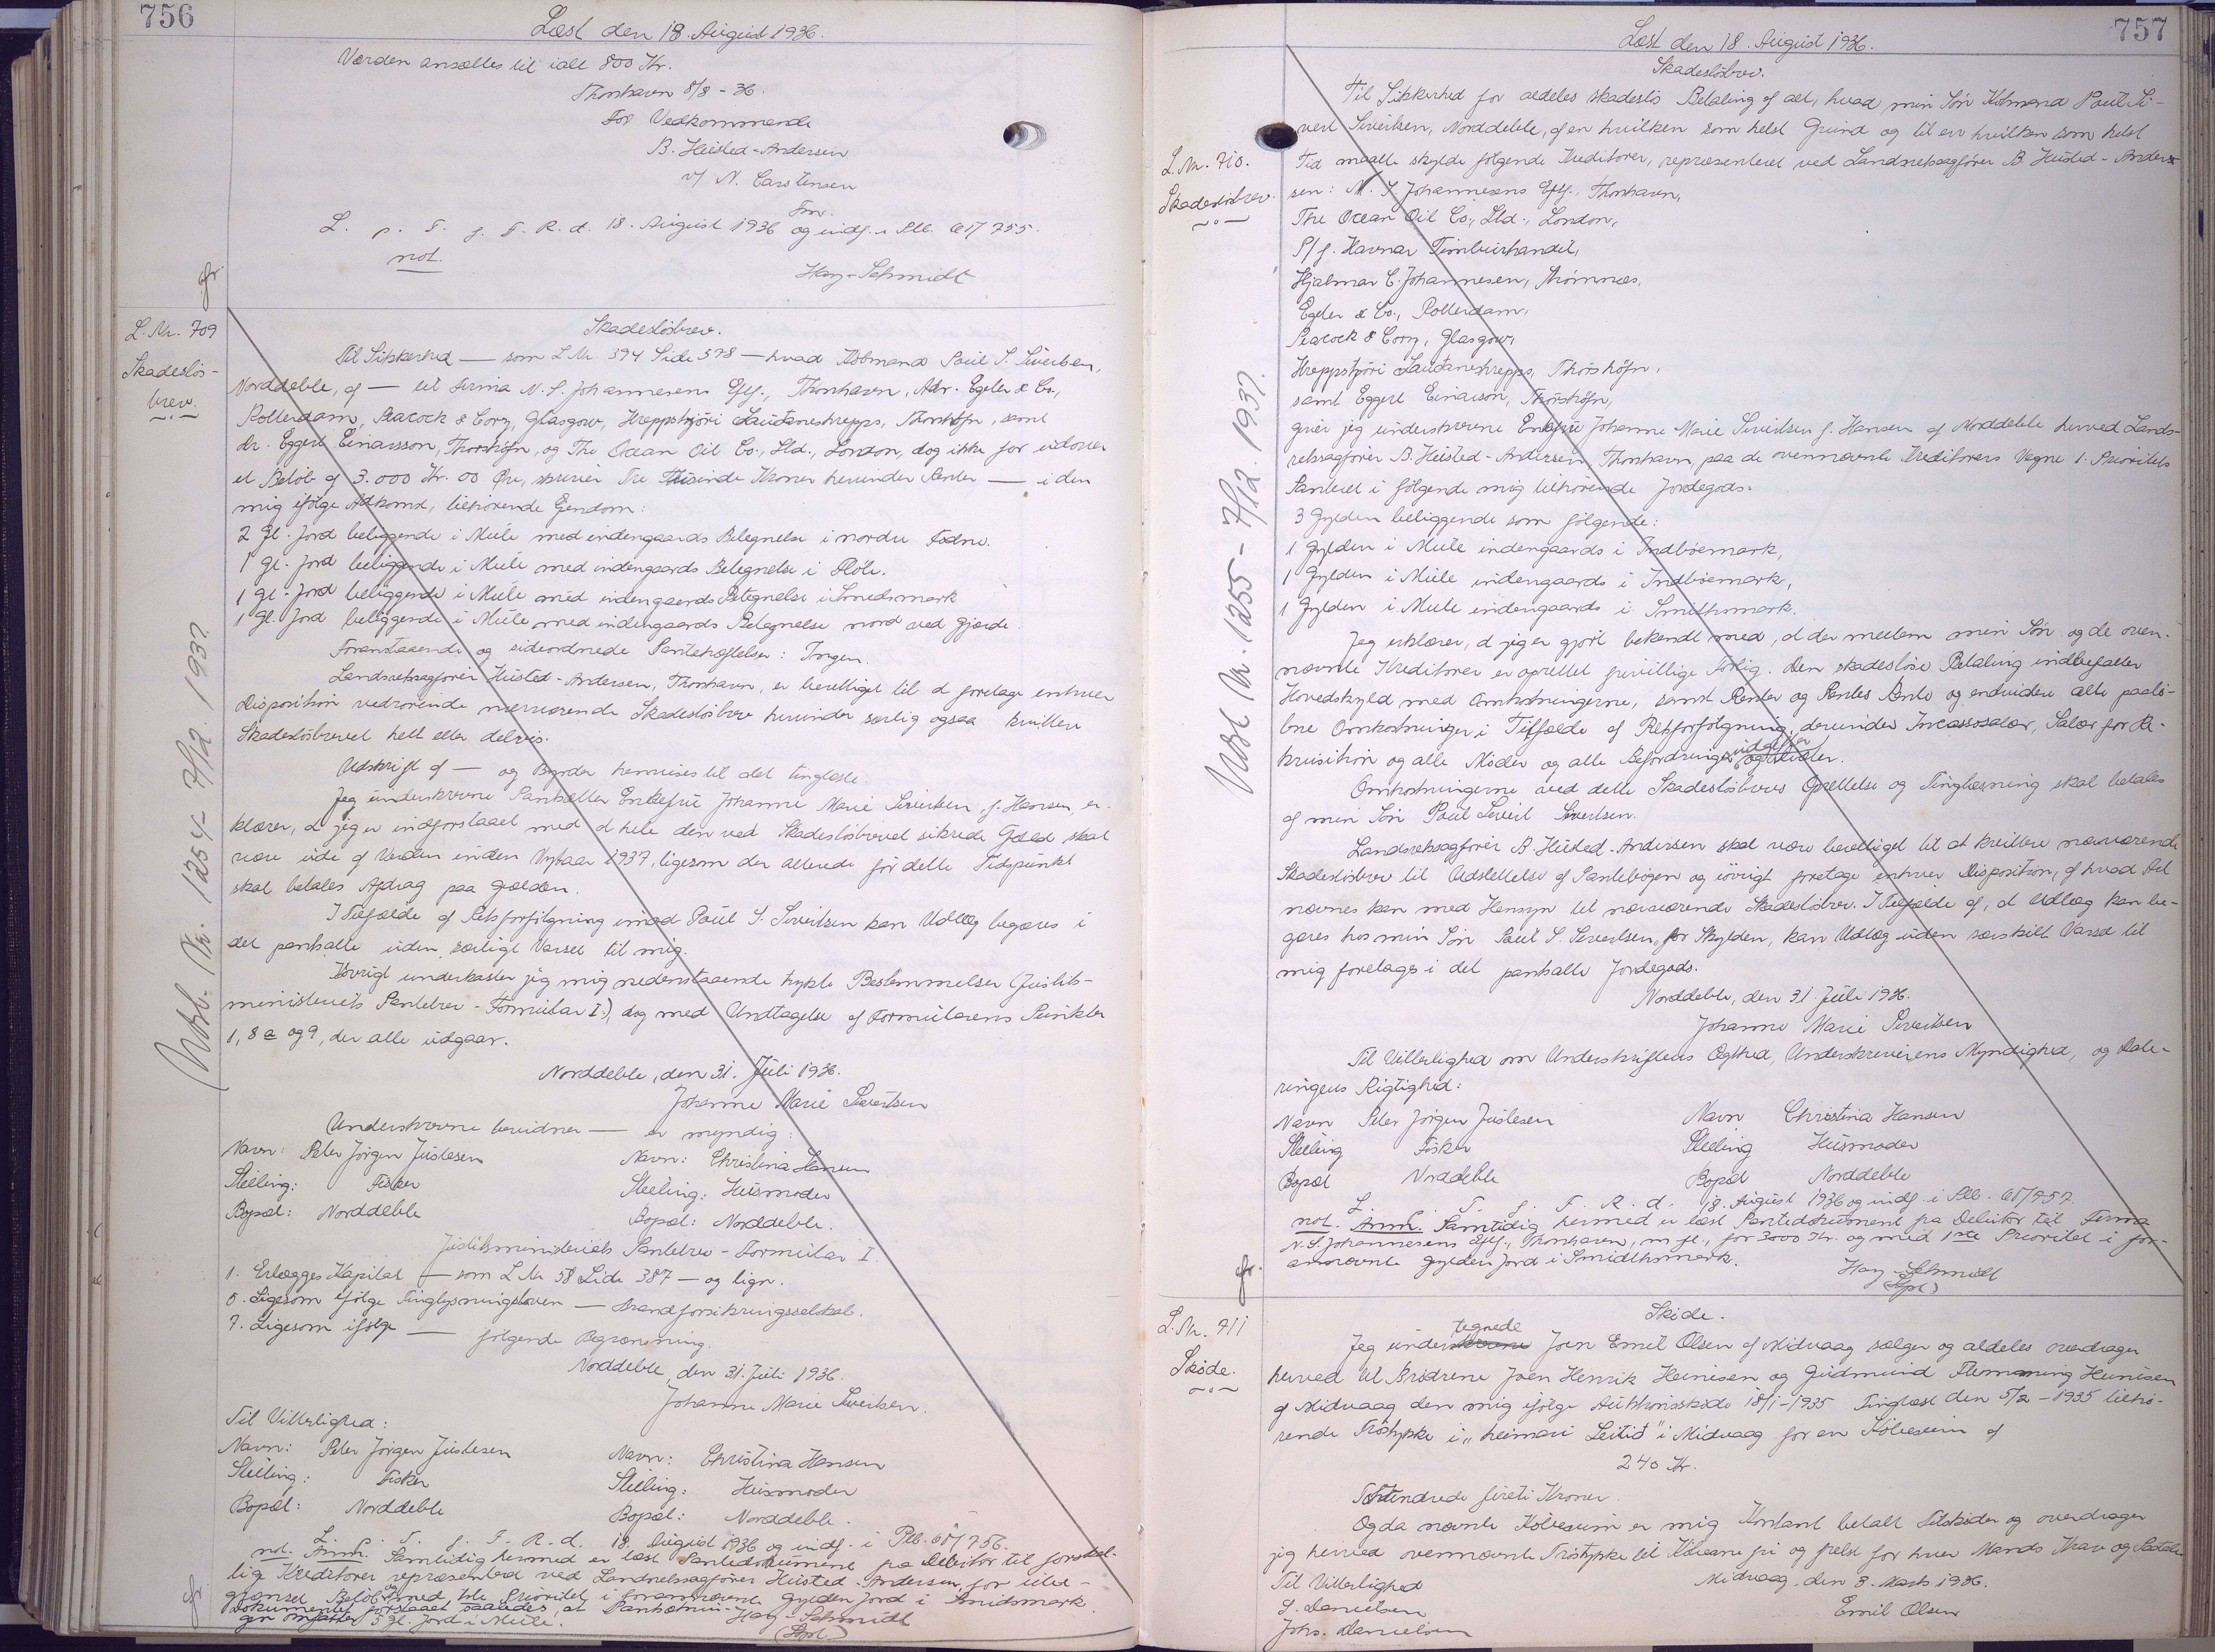 756
Læst den 18. August 1936.
Værdien ansættes til ialt 800 Kr.
Thorshavn 8/8 - 36.
For Vedkommende
B. Husted-Andersen
v/ N. Carstensen
Fm.
L. p. T. f. F. R. d. 18. August 1936 og indf. i Ptb. 61/755.
not.
Hay-Schmidt
L. Nr. 709
Skadesløs-
brev.
Udsl. Nr. 1254 - 7/12. 1937.
Skadesløsbrev.
Til Sikkerhed — som L Nr. 594 Side 598 — hvad Købmand Poul S. Sivertsen,
Norddeble, af — til Firma N. S. Johannesens Eftf., Thorshavn, Adr. Egeler & Co.,
Rotterdam, Peacock & Cory, Glasgow, Hreppstjóri Sautaneshrepps, Thorshöfn, samt
Hr. Eggert Einarsson, Thorshöfn, og The Ocean Oil Co., Ltd., London, dog ikke for udover
et Beløb af 3.000 Kr. 00 Øre, skriver Tre Tusinde Kroner herunder Renter — i den
mig ifølge Adkomst, tilhørende Ejendom:
2 Gl. Jord beliggende i Mule med indengaards Betegnelse i nordre
1 Gl. Jord beliggende i Mule med indengaards Betegnelse i
1 Gl. Jord beliggende i Mule med indengaards Betegnelse i Smedsmark
1 Gl. Jord beliggende i Mule med indengaards Betegnelse nord ved Gjærde.
Foranstaaende og sideordnede Pantehæftelser: Ingen.
Landsretssagfører Husted-Andersen, Thorshavn, er berettiget til at foretage enhver
Disposition vedrørende nærværende Skadesløsbrev herunder særlig ogsaa kvittere
Skadesløsbrevet helt eller delvis.
Udskrift af — og Byrder henvises til det tinglæste.
Jeg underskrevne Pantsætter Enkefru Johanne Marie Sivertsen f. Hansen, er-
klærer, at jeg er indforstaaet med at hele den ved Skadesløsbrevet sikrede Gæld skal
være ude af Verden inden Nytaar 1937, ligesom der allerede før dette Tidspunkt
skal betales Afdrag paa Gælden.
I Tilfælde af Retsforfølgning imod Poul S. Sivertsen kan Udlæg begæres i
det pantsatte uden særligt Varsel til mig.
Iøvrigt underkaster jeg mig nedenstaaende trykte Bestemmelser (Justits-
ministeriets Pantebrev - Formular I.), dog med Undtagelse af Formularens Punkter
1, 8 c og 9, der alle udgaar.
Norddeble, den 31. Juli 1936.
Johanne Marie Sivertsen
Underskrevne bevidner — er myndig:
Navn: Peter Jörgen Justesen Navn: Christina Hansen
Stilling: Fisker Stilling: Husmoder
Bopæl: Norddeble Bopæl: Norddeble.
Justitsministeriets Pantebrev - Formular I.
1. Erlægges Kapital — som L Nr 58 Side 387 — og lign.
5. Ligesom ifølge Tinglysningsloven — Brandforsikringsselskab.
7. Ligesom ifølge — følgende Begrænsning.
Norddeble, den 31. Juli 1936.
Johanne Marie Sivertsen.
Til Vitterlighed:
Navn: Peter Jörgen Justesen Navn: Christina Hansen
Stilling: Fisker Stilling: Husmoder
Bopæl: Norddeble Bopæl: Norddeble.
L. T. f. F. R. d. 18. August 1936 og indf. i Ptb. 61/756.
not. Anm. Samtidig hermed er læst Pantedokument fra Debitor til forskel-
lige Kreditorer repræsenteret ved Landsretssagfører Husted-Andersen for ube-
grænset Beløb og med 1ste Prioritet i forannævnte Gylden Jord i Smidsmark.
Dokumentet forstaaet saaledes, at Pantsætnin- Hay-Schmidt
gen omfatter 5 Gl. Jord i Mule.
757
Læst den 18. August 1936.
L. Nr. 710.
Skadesløsbrev.
Udsl. Nr. 1255 - 7/12. 1937.
Skadesløsbrev.
Til Sikkerhed for aldeles skadesløs Betaling af alt, hvad min Søn Købmand Poul Si-
vert Sivertsen, Norddeble, af en hvilken som helst Grund og til en hvilken som helst
Tid maatte skylde følgende Kreditorer, repræsenteret ved Landsretssagfører B. Husted-Ander-
sen: N. S. Johannesens Eftf., Thorshavn,
The Ocean Oil Co., Ltd., London,
P/f. Havnar Timburhandil,
Hjalmar C. Johannesen, Strømnæs,
Egeler & Co., Rotterdam,
Peacock & Cory, Glasgow,
Hreppstjóri Sautaneshrepps, Thórshöfn,
samt Eggert Einarson, Thórshöfn,
giver jeg underskrevne Enkefru Johanne Marie Sivertsen f. Hansen af Norddeble herved Lands-
retssagfører B. Husted-Andersen, Thorshavn paa de ovennævnte Kreditorers Vegne 1. Prioritets
Panteret i følgende mig tilhørende Jordegods:
3 Gylden beliggende som følgende:
1 Gylden i Mule indengaards i Indbøemark,
1 Gylden i Mule indengaards i Indbøemark,
1 Gylden i Mule indengaards i Smithsmark.
Jeg erklærer, at jeg er gjort bekendt med, at der mellem min Søn og de oven-
nævnte Kreditorer er oprettet frivillige Forlig. Den skadesløse Betaling indbefatter
Hovedskyld med Omkostningerne, samt Renter og Renters Rente og endvidere alle paalø-
bne Omkostninger i Tilfælde af Retsforfølgning, derunder Incassosalær, Salær for Re-
kvisition og alle Møder og alle Befordringsudgifter
Omkostningerne ved dette Skadesløsbrevs Oprettelse og Tinglæsning skal betales
af min Søn Poul Sivert Sivertsen.
Landsretssagfører B. Husted-Andersen skal være berettiget til at kvittere nærværende
Skadesløsbrev til Udslettelse af Pantebogen og iøvrigt foretage enhver Disposition, af hvad Art
nævnes kan med Hensyn til nærværende Skadesløsbrev. I Tilfælde af, at Udlæg kan be-
gæres hos min Søn Poul S. Sivertsen for Skylden, kan Udlæg uden særskilt Varsel til
mig foretages i det pantsatte Jordegods.
Norddeble, den 31. Juli 1936.
Johanne Marie Sivertsen
Til Vitterlighed om Underskriftens Ægthed, Underskriverens Myndighed, og Date-
ringens Rigtighed:
Navn Peter Jörgen Justesen Navn Christina Hansen
Stilling Fisker Stilling Husmoder
Bopæl Norddeble Bopæl Norddeble
L. T. f. F. R. d. 18. August 1936 og indf. i Ptb. 61/757.
not. Anm. Samtidig hermed er læst Pantedokument fra Debitor til Firma
N. S. Johannesens Eftf., Thorshavn, m. fl., for 3000 Kr. og med 1ste Prioritet i for-
annævnte Gylden Jord i Smidthsmark.
Hay-Schmidt
L. Nr. 711
Skøde.
Skøde.
tegnede
Jeg under Joen Emil Olsen af Midvaag sælger og aldeles overdrager
herved til Brødrene Joen Henrik Heinesen og Gudmund Flemming Heinesen
af Midvaag den mig ifølge Auktionsskøde 18/1-1935 Tinglæst den 5/2 - 1935 tilhø-
rende Tröstykke i „heimari Leitið" i Midvaag for en Købesum af
240 Kr.
Tohundrede firti Kroner.
Og da nævnte Købesum er mig Kontant betalt tilskøder og overdrager
jeg herved ovennævnte Tröstykke til Køberne fri og frelst for hver Mands Krav og Paatale
Til Vitterlighed Midvaag, den 3. Marts 1936.
S. Danielsen Emil Olsen
Johs. Danielsen